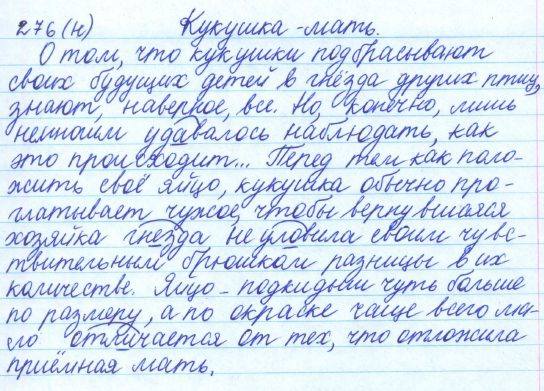 276 (н) Кукушка - мать.
О том, что кукушки подбрасывают
своих будущих детей в гнёзда других птиц,
знают, наверное, все. Но, конечно, лишь
немногим удавалось наблюдать, как
это происходит... Перед тем как поло-
жить своё яйцо, кукушка обычно про-
глатывает чужое, чтобы вернувшаяся
хозяйка гнезда не уловила своим чувс-
твительным брюшком разницы в их
количестве. Яйцо - подкидыш чуть больше
по размеру, а по окраске чаще всего ма-
ло отличается от тех, что отложила
приёмная мать.